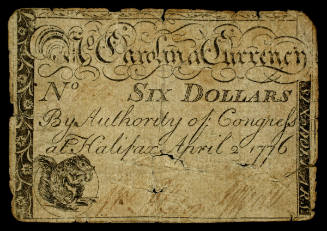 No Carolina Currency
No SIX DOLLARS
By Authority of Congress
at Halifax April 2 1776